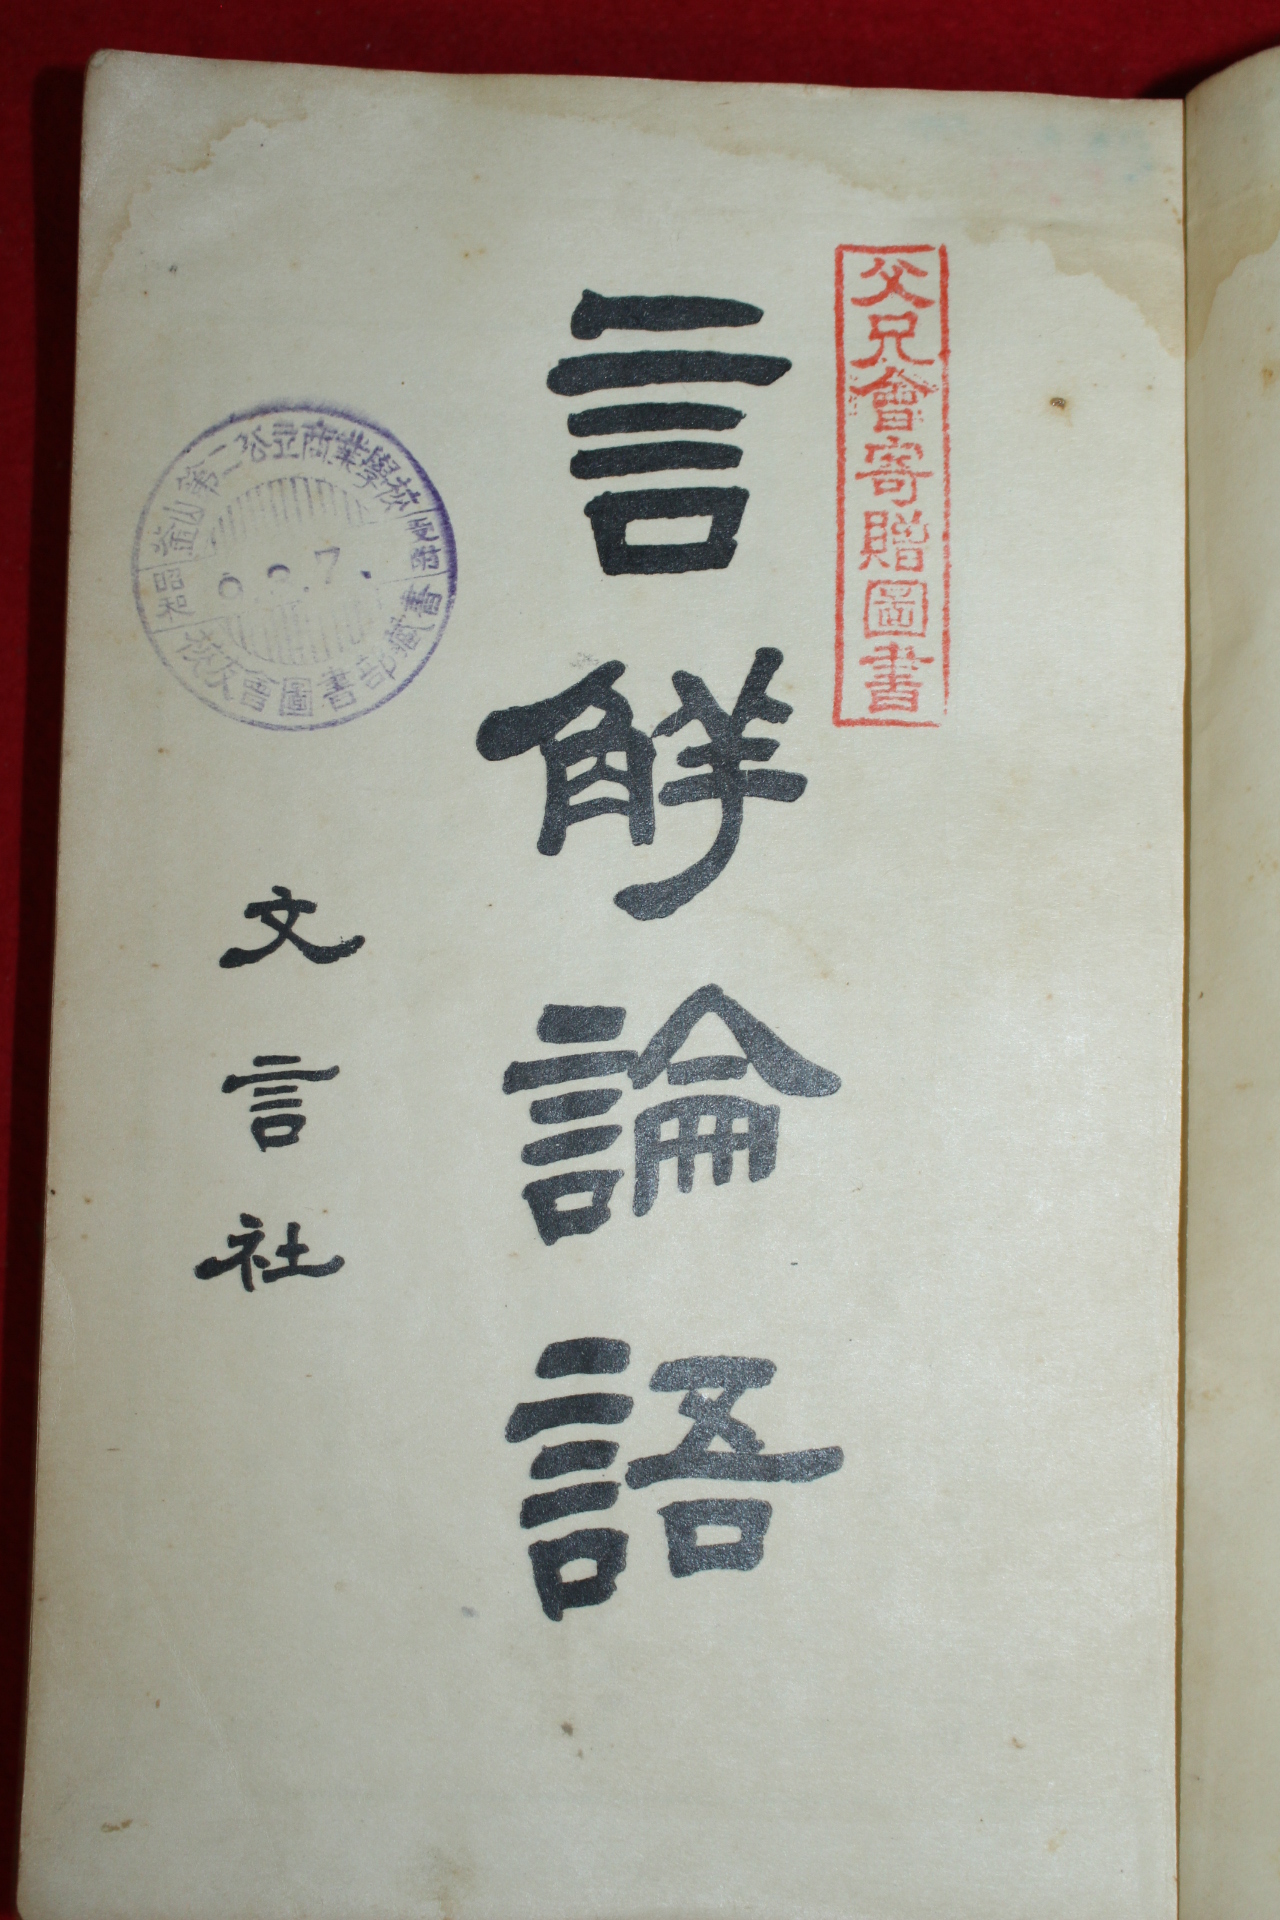 父兄會寄贈圖書
言解論語
文言社
釜山第二公立商業學校
受附
昭和
校友會圖書部藏書